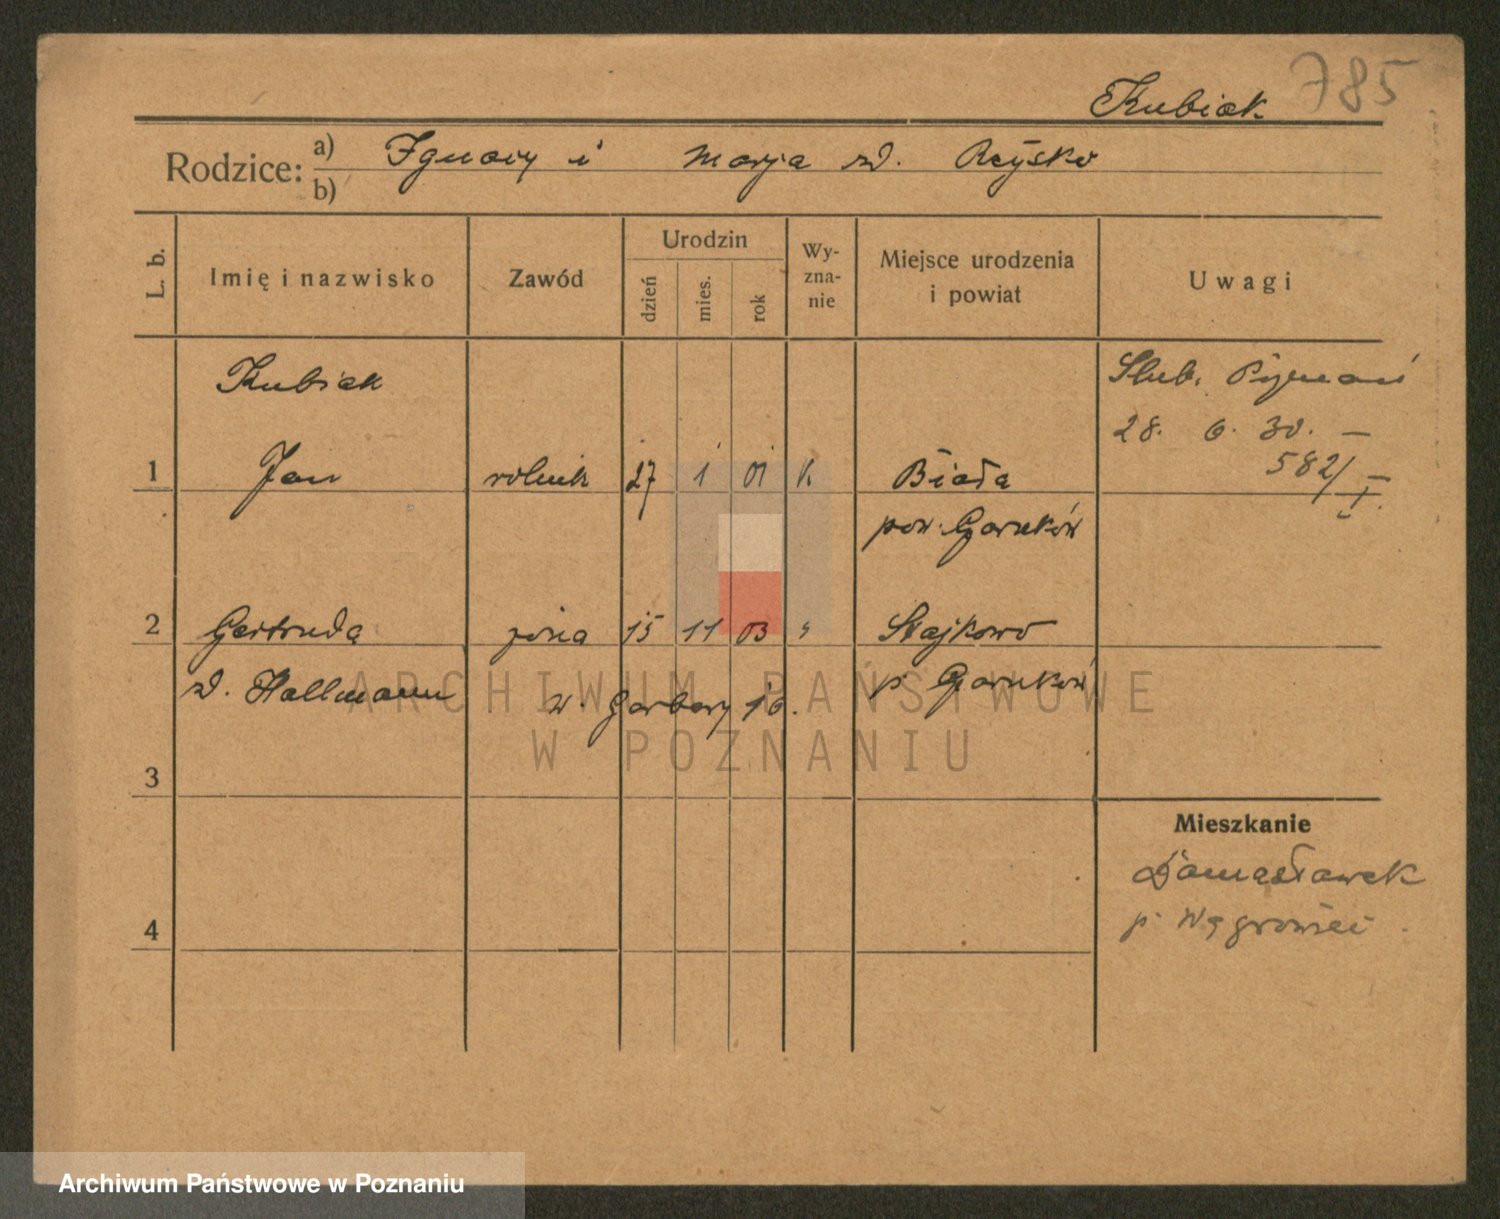 785
Kubiak
Rodzice: a) Ignacy i Marja zd. Rzysko
b)
L. b.
Imię i nazwisko
Zawód
Urodzin
dzień
mies.
rok
Wy-
zna-
nie
Miejsce urodzenia
i powiat
Uwagi
Kubiak
1 Jan rolnik 27 1 01 K Biała
pow. Czarnków
Ślub.
28. 6. 30. —
582/I.
2 Gertruda żona 15 11 03 " Stajkowo
zd. Hallmann w. Garbary 16. p. Czarnków
3
4
Mieszkanie
Damasławek
p. Wągrowiec
ARCHIWUM PAŃSTWOWE
W POZNANIU
Archiwum Państwowe w Poznaniu